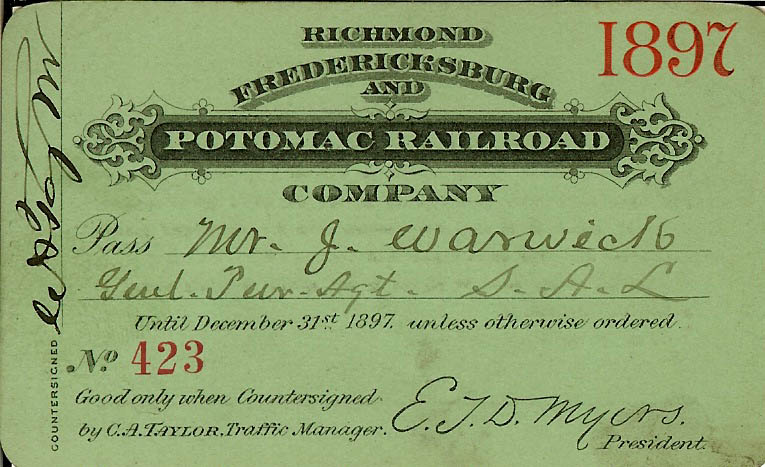 RICHMOND
FREDERICKSBURG
AND
POTOMAC RAILROAD
COMPANY
1897
Pass Mr. J. Warwick
Genl. Pur. Agt. S. A. L
Until December 31st 1897. unless otherwise ordered.
No 423
Good only when Countersigned
by C.A. TAYLOR, Traffic Manager.
E. T. D. Myers.
President.
COUNTERSIGNED